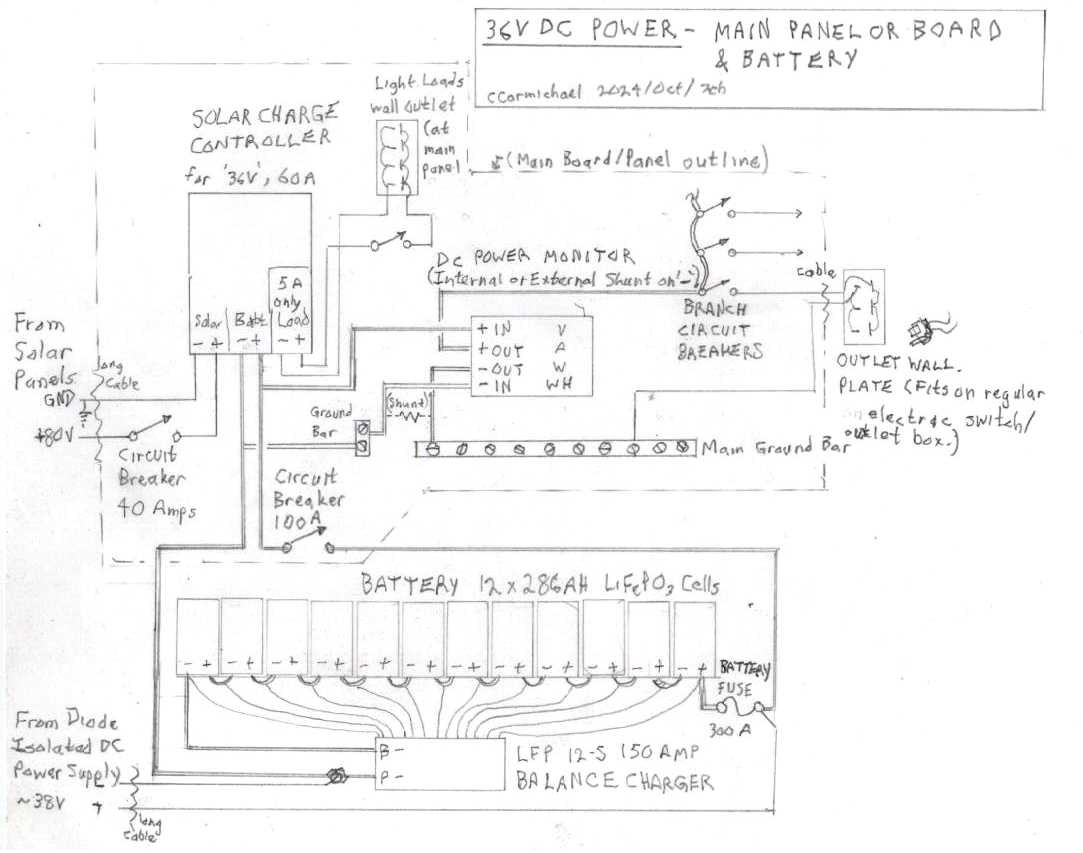 36V DC POWER - MAIN PANEL OR BOARD
& BATTERY
CCarmichael 2024/Oct/7th
Light Loads
wall outlet
(at
main
panel
SOLAR CHARGE
CONTROLLER
for '36V', 60A
(Main Board/Panel outline)
DC POWER MONITOR
(Internal or External Shunt on '-')
5A
only
Solar Batt Load
- + - + - +
cable
BRANCH
CIRCUIT
BREAKERS
+ IN V
+ OUT A
- OUT W
- IN WH
From
Solar
Panels
GND
+80V
Long
Cable
Circuit
Breaker
40 Amps
Ground
Bar
(Shunt)
Main Ground Bar
OUTLET WALL
PLATE (Fits on regular
electric switch/
outlet box.)
Circuit
Breaker
100A
BATTERY 12 x 286AH LiFePO3 Cells
- + - + - + - + - + - + - + - + - + - + - + - +
BATTERY
FUSE
300 A
From Diode
Isolated DC
Power Supply -
~38V +
long
cable
B-
P-
LFP 12-S 150 AMP
BALANCE CHARGER